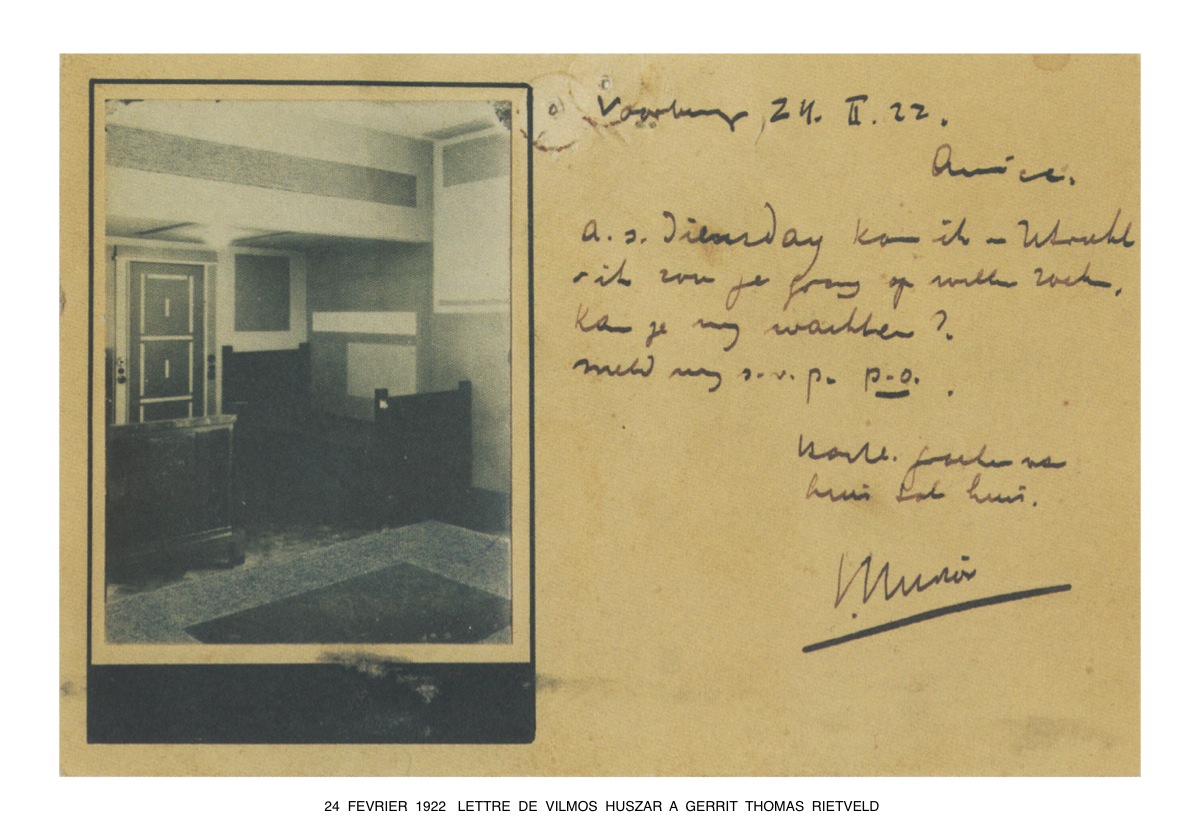 Voorburg, 24. II. 22.
Amice.
a.s. Diensday kom ik in Utrecht
ik zou je graag op willen zoeken.
Kan je my wachten?
meld my s.v.p. p.o.
Hartel. groeten van
huis tot huis.
24 FEVRIER 1922 LETTRE DE VILMOS HUSZAR A GERRIT THOMAS RIETVELD